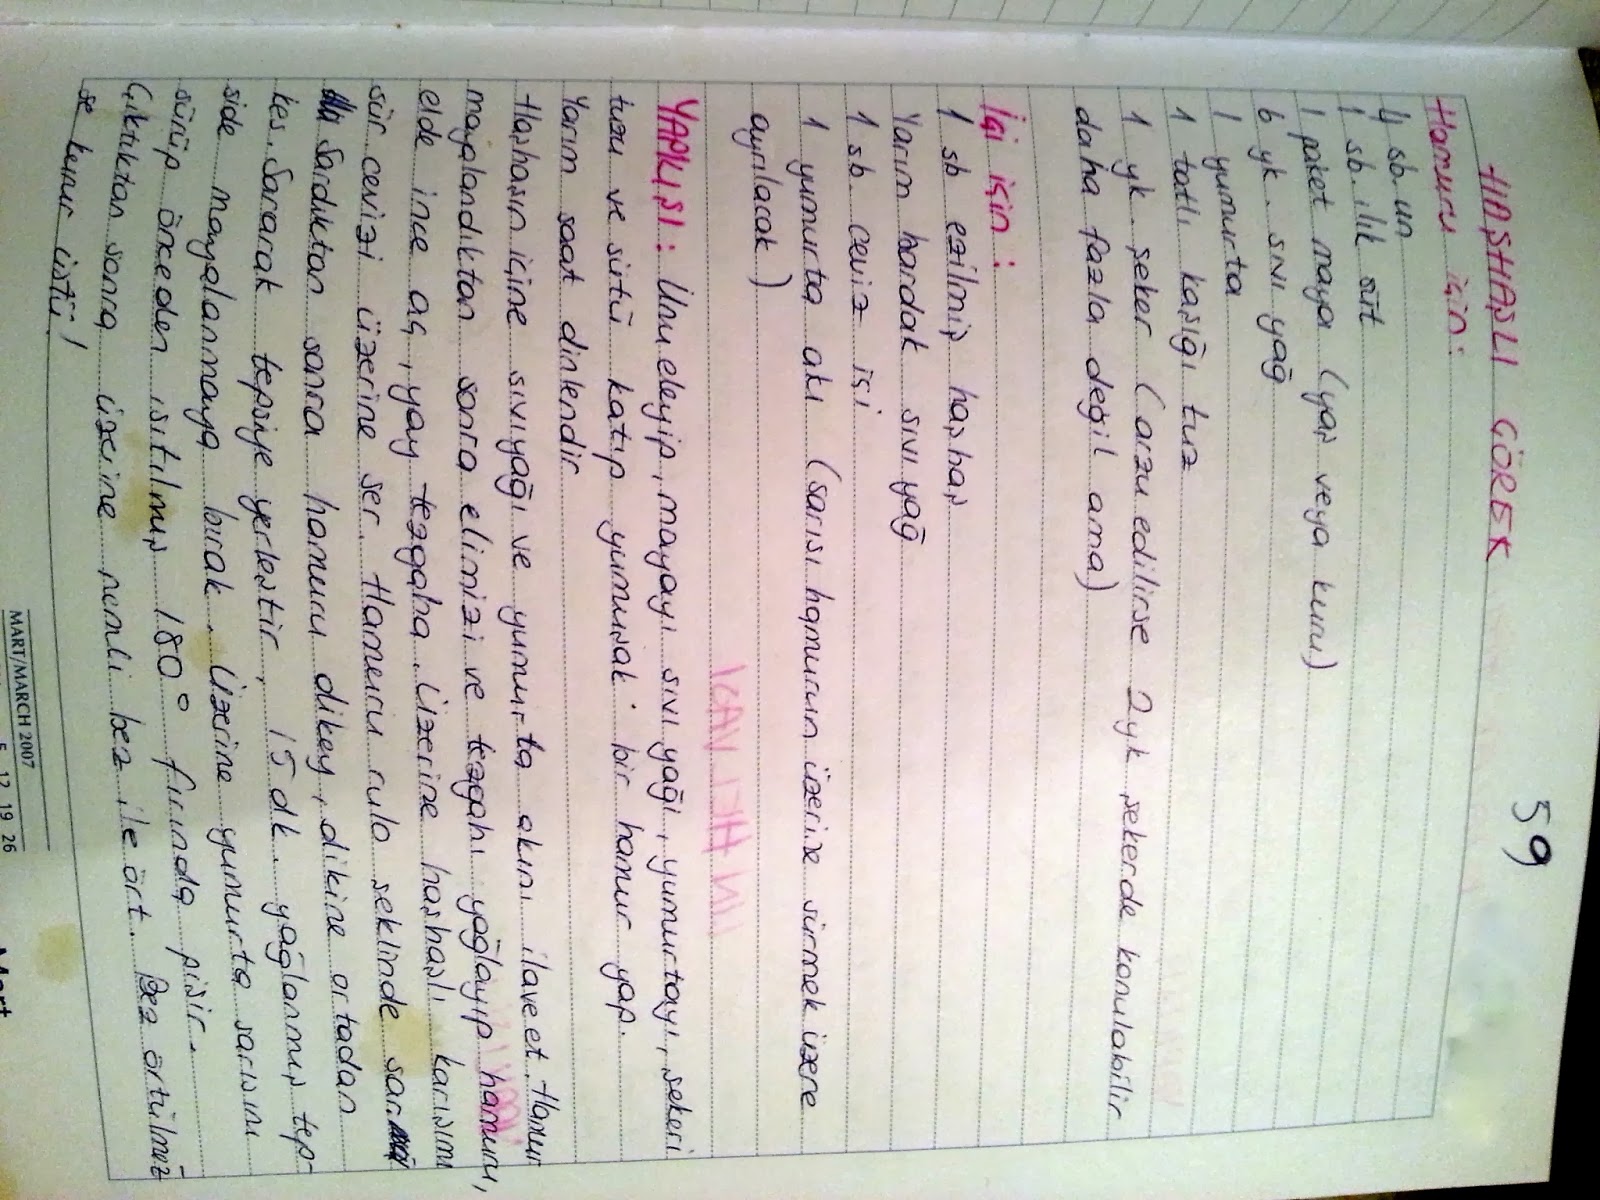 59
HAŞHAŞLI ÇÖREK
Hamuru için:
4 sb un
1 sb. ılık süt
1 paket maya (yaş veya kuru)
6 yk. sıvı yağ
1 yumurta
1 tatlı kaşığı tuz
1 yk. şeker (arzu edilirse 2 yk şekerde konulabilir
daha fazla değil ama)
İçi için:
1 sb ezilmiş haşhaş
Yarım bardak sıvı yağ
1 sb ceviz içi
1 yumurta akı (sarısı hamurun üzerine sürmek üzere
ayrılacak)
YAPILIŞI: Unu eleyip, mayayı sıvı yağı, yumurtayı, şekeri
tuzu ve sütü katıp yumuşak bir hamur yap.
Yarım saat dinlendir
Haşhaşın içine sıvıyağı ve yumurta akını ilave et. Hamur
mayalandıktan sonra elimizi ve tezgahı yağlayıp hamuru,
elde ince aç, yay tezgaha. Üzerine haşhaşlı karışımı
sür cevizi üzerine ser. Hamuru rulo seklinde sar
Sardıktan sonra hamuru dikey, dikine ortadan
kes. Sararak tepsiye yerleştir. 15 dk. yağlanmış tep-
side mayalanmaya bırak. Üzerine yumurta sarısını
sürüp önceden ısıtılmış 180° fırında pişir.
Çıktıktan sonra üzerine nemli bez ile ört. Bez örtülmez
se kurur üstü!
MART/MARCH 2007
5 12 19 26
Mart